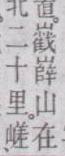 道。巀嶭山在
北二十里。嵯